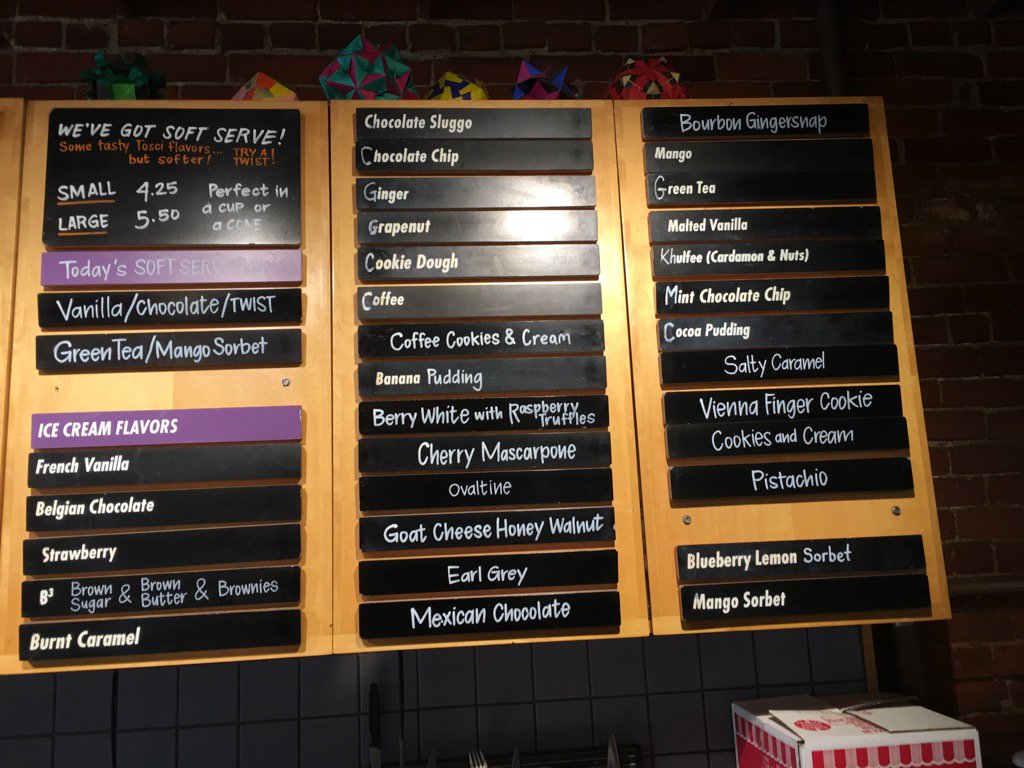 WE'VE GOT SOFT SERVE!
Some tasty Tosci flavors...
but softer!
TRY A
TWIST!
SMALL 4.25
LARGE 5.50
Perfect in
a cup or
a CONE
Today's SOFT SERVE flavors
Vanilla/Chocolate/TWIST
Green Tea/Mango Sorbet
ICE CREAM FLAVORS
French Vanilla
Belgian Chocolate
Strawberry
B³ Brown Sugar & Brown Butter & Brownies
Burnt Caramel
Chocolate Sluggo
Chocolate Chip
Ginger
Grapenut
Cookie Dough
Coffee
Coffee Cookies & Cream
Banana Pudding
Berry White with Raspberry Truffles
Cherry Mascarpone
Ovaltine
Goat Cheese Honey Walnut
Earl Grey
Mexican Chocolate
Bourbon Gingersnap
Mango
Green Tea
Malted Vanilla
Khulfee (Cardamon & Nuts)
Mint Chocolate Chip
Cocoa Pudding
Salty Caramel
Vienna Finger Cookie
Cookies and Cream
Pistachio
Blueberry Lemon Sorbet
Mango Sorbet